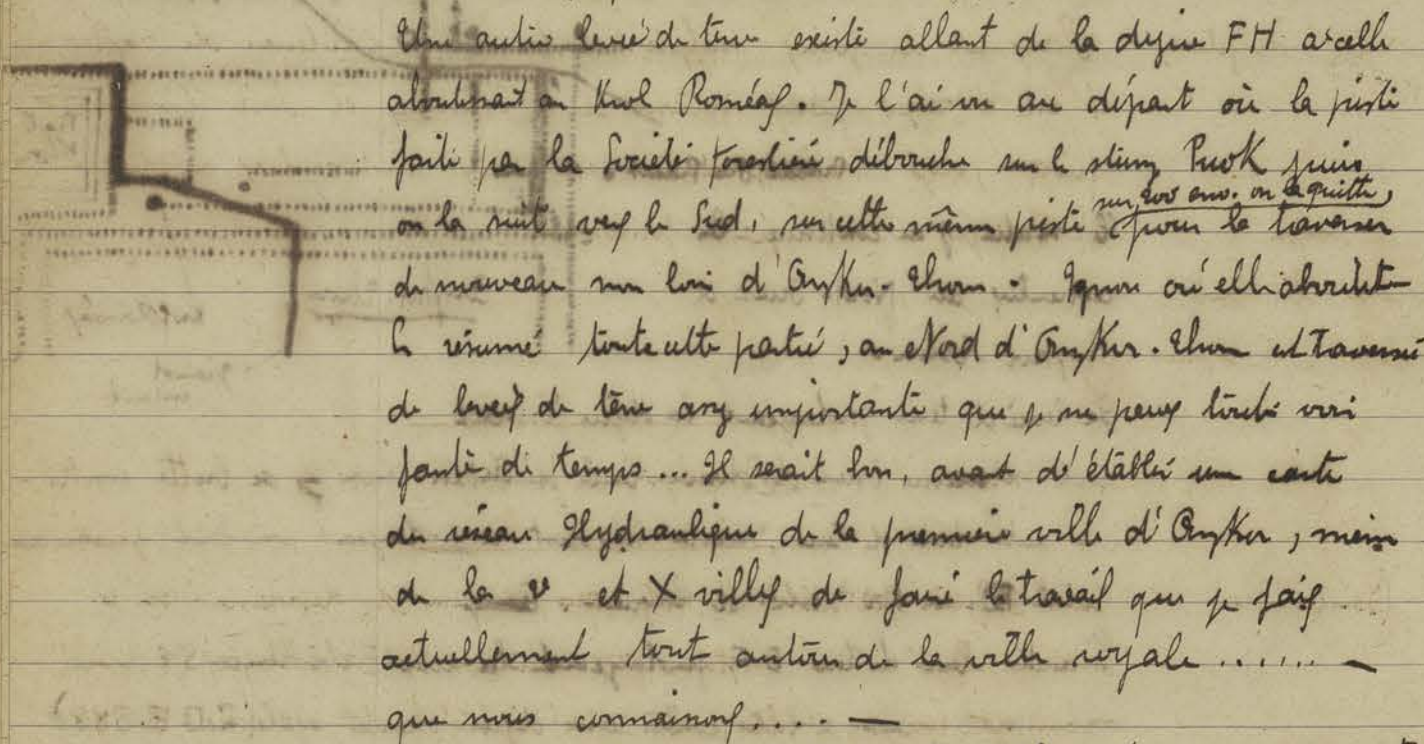 Une autre levée de terre existe allant de la digue FH à celle
aboutissant au Krol Roméas. Je l'ai vu au départ où la piste
faite par la Société forestière débouche sur le stung Puok puis
on la suit vers le Sud, sur cette même piste sur 200 env. on la quitte, pour la traverser
de nouveau non loin d'Angkor-Thom - Ignore où elle aboutit
En résumé toute cette partie, au Nord d'Angkor-Thom est traversée
de levées de terre assez importante que je ne peux toute voir
faute de temps... Il serait bon, avant d'établir une carte
du réseau Hydraulique de la première ville d'Angkor, même
de la 2e et X villes de faire le travail que je fais
actuellement tout autour de la ville royale ....... —
que nous connaissons .... —